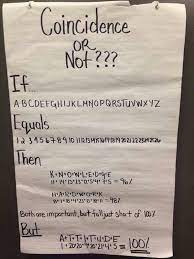 Coincidence
OR
Not???
If...
A B C D E F G H I J K L M N O P Q R S T U V W X Y Z
Equals...
1 2 3 4 5 6 7 8 9 10 11 12 13 14 15 16 17 18 19 20 21 22 23 24 25 26
Then
K+N+O+W+L+E+D+G+E
11+14+15+23+12+5+4+7+5 = 96%
H+A+R+D+W+O+R+K
= 98%
Both are important, but fall just short of 100%
But...
A+T+T+I+T+U+D+E
1+20+20+9+20+21+4+5 = 100%